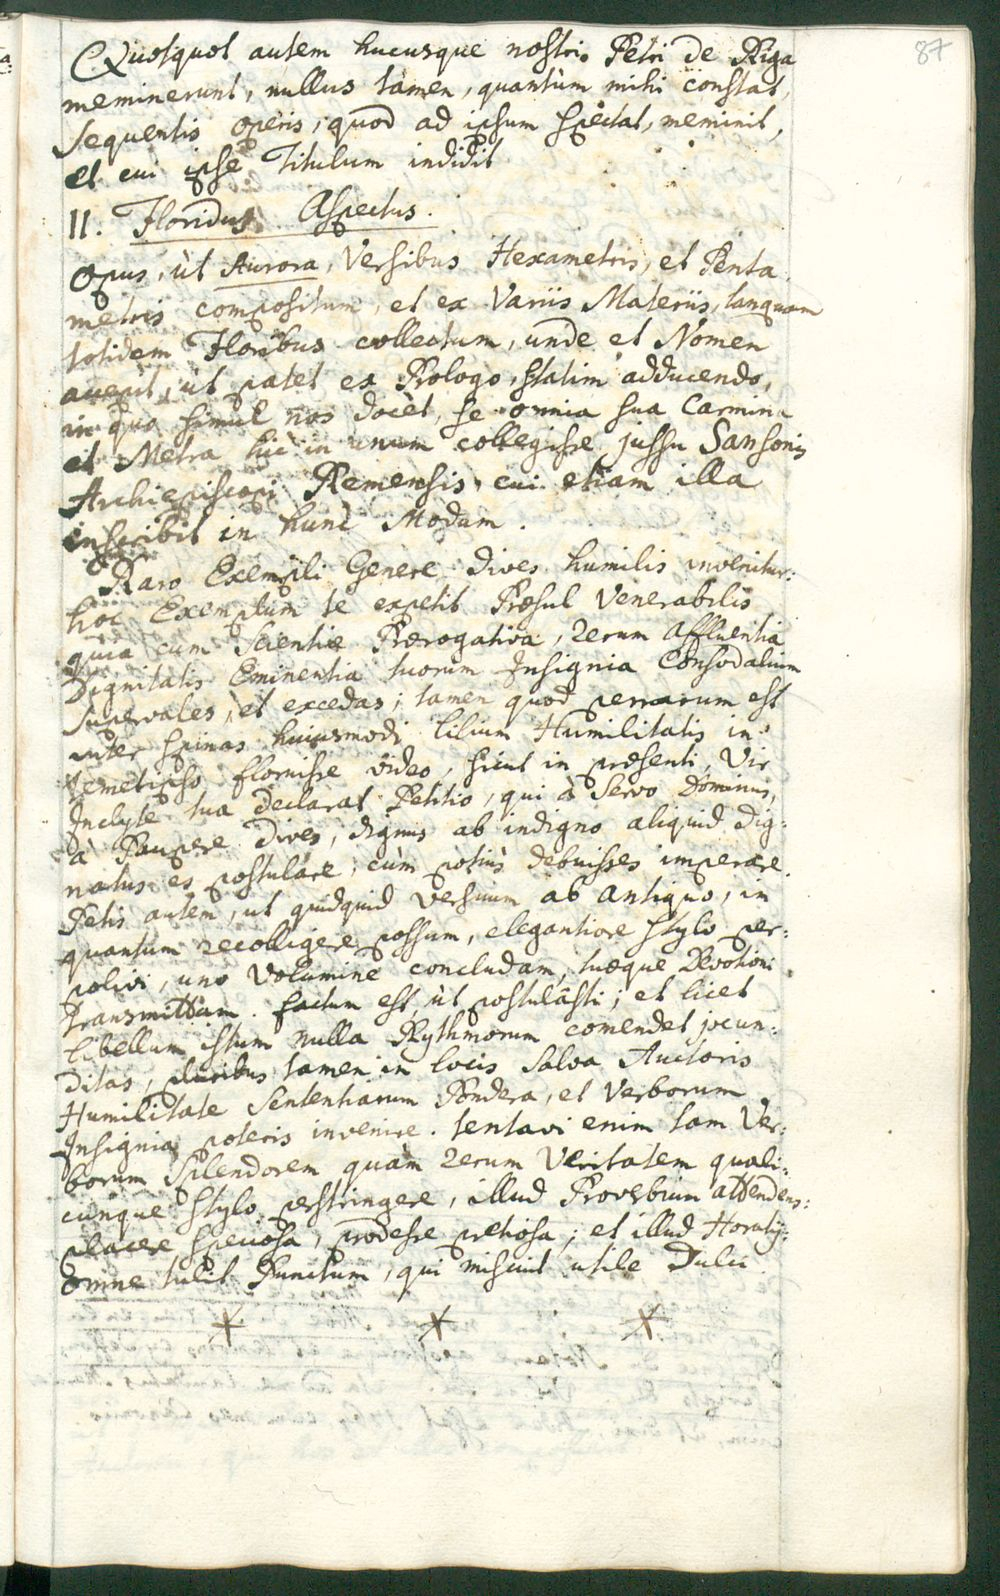 87
Quotquot autem hucusque nostri Petri de Riga
meminerunt, nullus tamen, quantum mihi constat,
sequentis operis, quod ad ipsum spectat, meminit,
et cui ipse Titulum indidit
II. Floridus Aspectus.
Opus, ut Aurora, Versibus Hexametris, et Penta
metris compositum, et ex Variis Materiis, tanquam
totidem Floribus collectum, unde et Nomen
accepit, ut patet ex Prologo statim adducendo,
in quo simul nos docet, se omnia sua Carmina
et Metra hic in unum collegisse jussu Sansonis
Archiepiscopi Remensis, cui etiam illa
inscribit in hunc Modum.
Raro Exempli Genere dives humilis invenitur:
hoc Exemplum te expetit Præsul Venerabilis
quia cum Scientiæ Prærogativa, rerum affluentia
Dignitatis Eminentia tuorum Insignia Consodalium
supervales, et excedas; tamen quod perrarum est
inter spinas huiusmodi lilium Humilitatis in
temetipso floruisse video, sicut in præsenti, Vir
Inclyte tua declarat Petitio, qui à Servo Dominus,
à Paupere Dives, dignus ab indigno aliquid dig:
natus es postulare, cùm potiùs debuisses imperare.
Petis autem, ut quidquid versuum ab antiquo, in
quantum recolligere possum, elegantiore stylo per:
polivi, uno Volumine concludam, tuæque Devotioni
transmittam. factum est, ut postulâsti; et licet
libellum istum nulla Rythmorum comendet jocun:
ditas, pluribus tamen in locis salva Auctoris
Humilitate Sententiarum Pondera, et Verborum
Insignia poteris invenire. tentavi enim tam Ver:
borum Splendorem quàm rerum Veritatem quali:
cunque stylo perstringere, illud Proverbium attendens:
placere speciosa, prodesse pretiosa; et illud Horatij:
omne tulit Punctum, qui miscuit utile Dulci